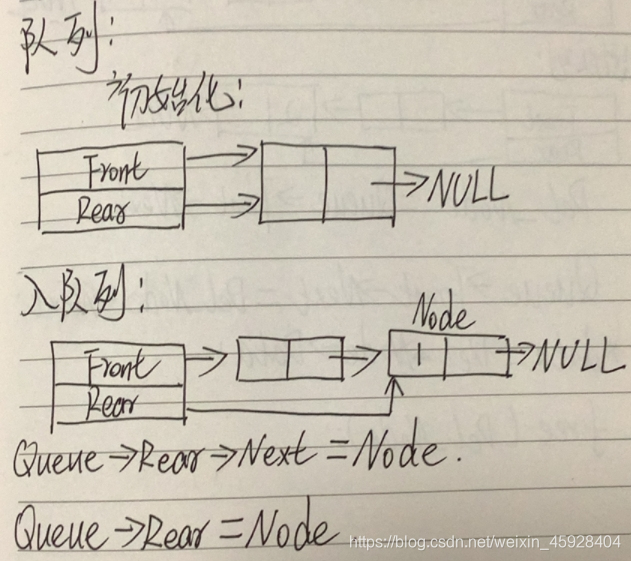 队列:
初始化:
Front
Rear
NULL
入队列:
Node
Front
1
NULL
Rear
Queue→Rear→Next=Node.
Queue→Rear=Node
https://blog.csdn.net/weixin_45928404